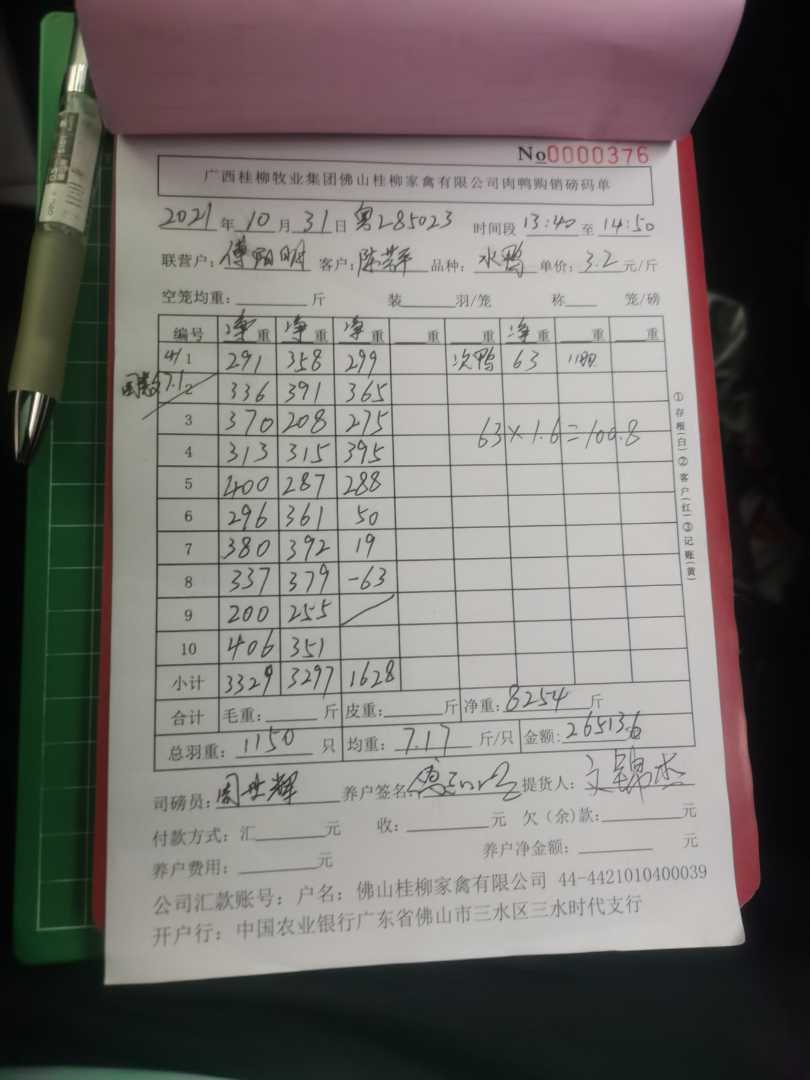 No 0000376
广西桂柳牧业集团佛山桂柳家禽有限公司肉鸭购销磅码单
2021年10月31日 粤Z85023 时间段 13:40 至 14:50
联营户: 傅阳明 客户: 陈荣平 品种: 水鸭 单价: 3.2 元/斤
空笼均重: 斤 装 羽/笼 称 笼/磅
编号 净重 净重 净重 重 重 净重 重 重
1 291 358 299 次鸭 63
2 336 391 365
3 370 208 275
63×1.6=100.8
4 313 315 395
5 400 287 288
6 296 361 50
7 380 392 19
8 337 379 -63
9 200 255
10 406 351
小计 3329 3297 1628
合计 毛重: 斤 皮重: 斤 净重: 8254 斤
总羽重: 1150 只 均重: 7.17 斤/只 金额: 26513.6
司磅员: 周世辉 养户签名: 提货人: 文锦杰
付款方式: 汇 元 收: 元 欠(余)款: 元
养户费用: 元 养户净金额: 元
公司汇款账号: 户名: 佛山桂柳家禽有限公司 44-4421010400039
开户行: 中国农业银行广东省佛山市三水区三水时代支行
①存根(白)②客户(红)③记账(黄)